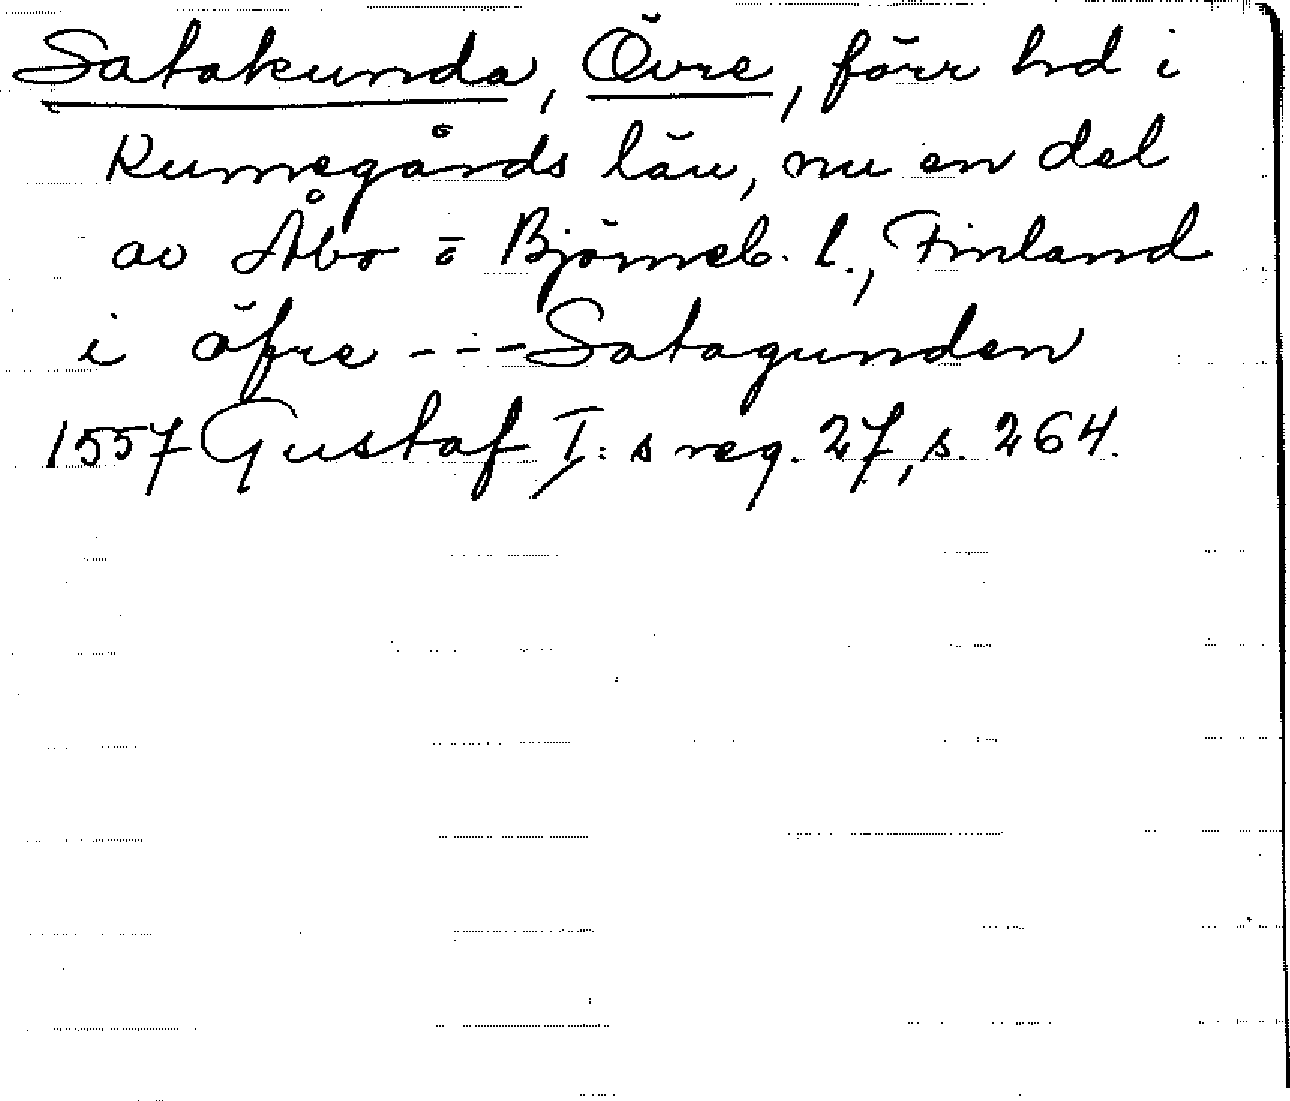 Satakunda, Övre, förr hd i
Kumogårds län, nu en del
av Åbo o Björneb. l., Finland
i öfre - - - Satagunden
1557 Gustaf I:s reg. 27, s. 264.